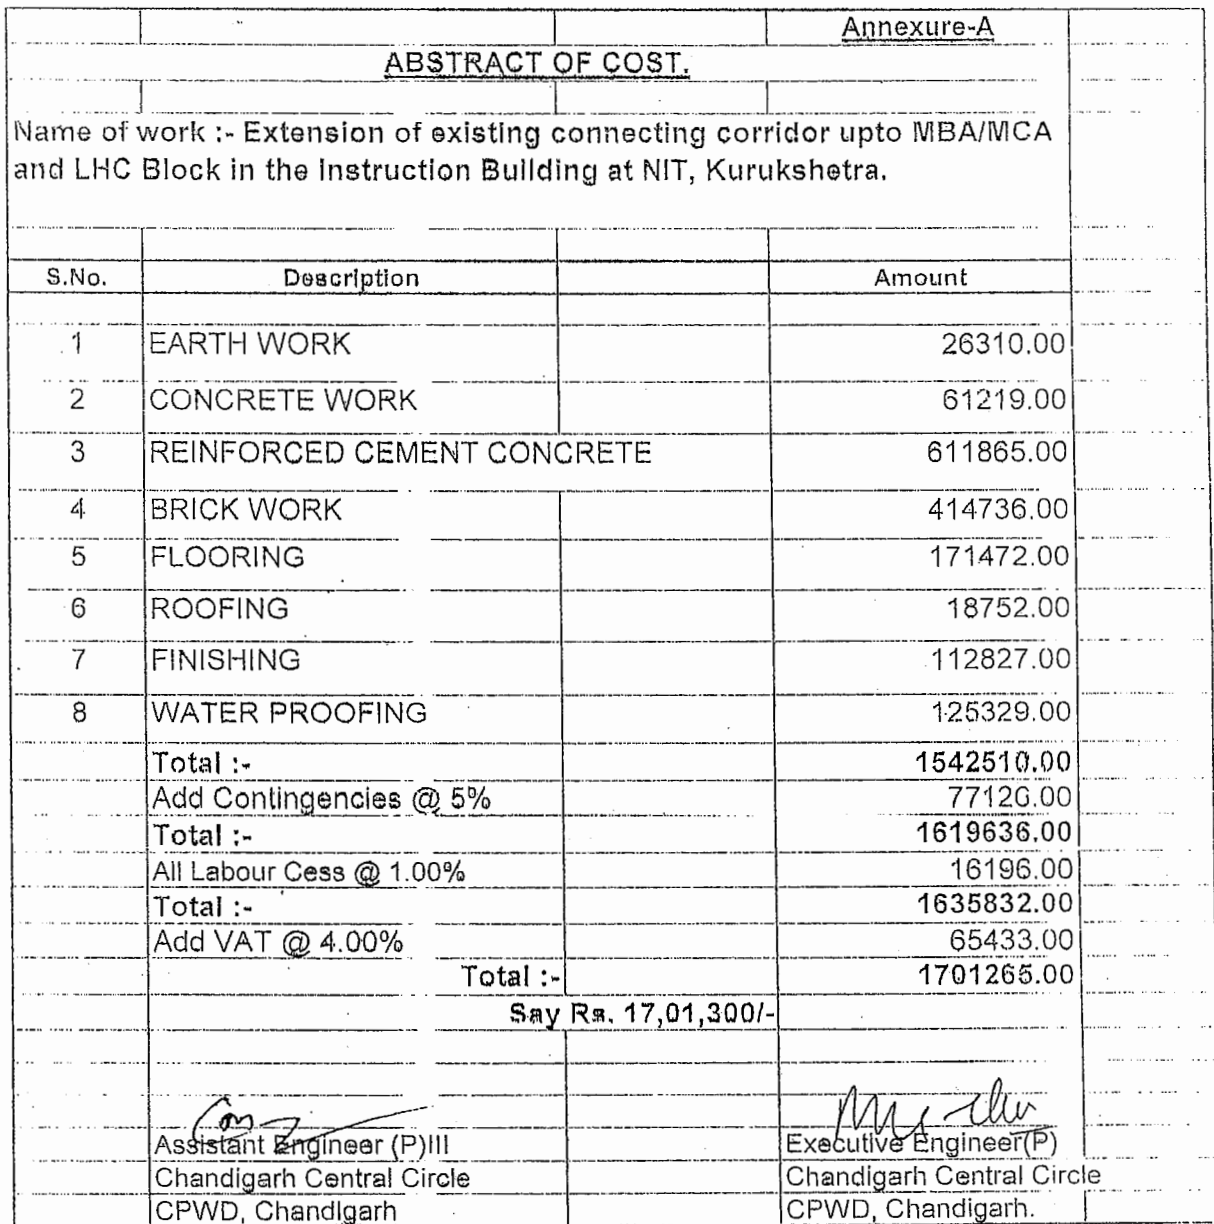 Annexure-A
ABSTRACT OF COST.
Name of work :- Extension of existing connecting corridor upto MBA/MCA
and LHC Block in the Instruction Building at NIT, Kurukshetra.
S.No. Description Amount
1 EARTH WORK 26310.00
2 CONCRETE WORK 61219.00
3 REINFORCED CEMENT CONCRETE 611865.00
4 BRICK WORK 414736.00
5 FLOORING 171472.00
6 ROOFING 18752.00
7 FINISHING 112827.00
8 WATER PROOFING 125329.00
Total :- 1542510.00
Add Contingencies @ 5% 77126.00
Total :- 1619636.00
All Labour Cess @ 1.00% 16196.00
Total :- 1635832.00
Add VAT @ 4.00% 65433.00
Total :- 1701265.00
Say Rs. 17,01,300/-
Assistant Engineer (P)III Executive Engineer(P)
Chandigarh Central Circle Chandigarh Central Circle
CPWD, Chandigarh CPWD, Chandigarh.